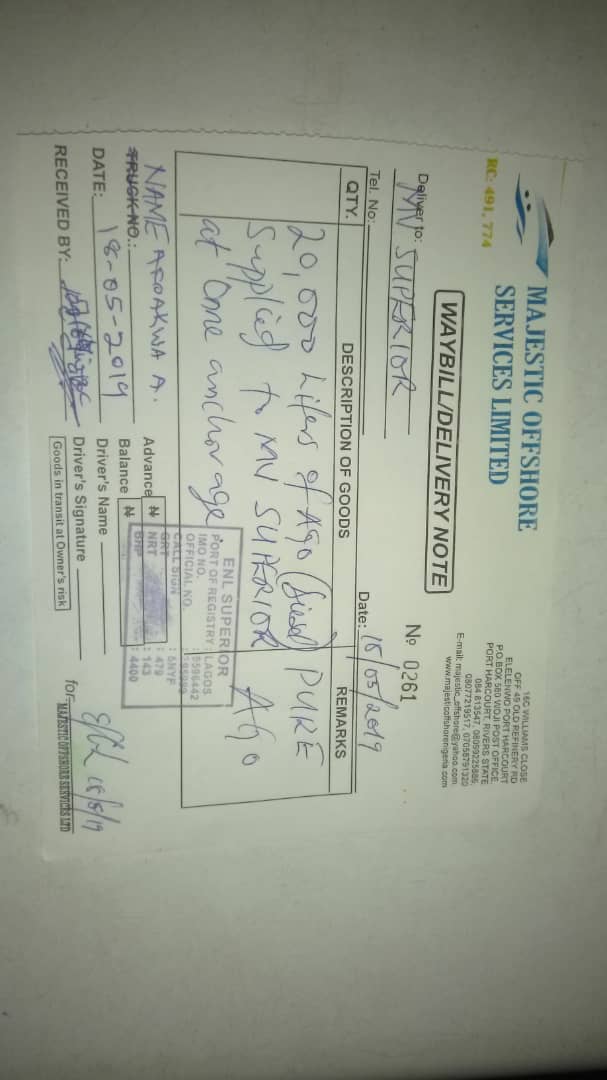 MAJESTIC OFFSHORE
SERVICES LIMITED
RC: 491, 774
16C WILLIAMS CLOSE
OFF 49 OLD REFINERY RD
ELELENWO PORT HARCOURT
P.O.BOX 580 WOJI POST OFFICE,
PORT HARCOURT, RIVERS STATE
084 813547, 08059225886,
08077219517, 07058791320
E-mail: majestic_offshore@yahoo.com
www.majesticoffshorenigeria.com
WAYBILL/DELIVERY NOTE
Nº 0261
Deliver to: MV SUPERIOR
Tel. No:
Date: 18/05/2019
QTY. DESCRIPTION OF GOODS REMARKS
20,000 Liters of AGO (diesel) PURE
Supplied to MV SUPERIOR AGO
at Onne anchorage.
ENL SUPERIOR
PORT OF REGISTRY : LAGOS
IMO NO. : 9596442
OFFICIAL NO.
CALL SIGN : 5NYP
GRT : 479
NRT : 143
BHP : 4400
NAME AROAKWA A.
TRUCK NO.:
Advance ₦
Balance ₦
DATE: 18-05-2019
Driver's Name
RECEIVED BY:
Driver's Signature
Goods in transit at Owner's risk
18/5/19
for: MAJESTIC OFFSHORE SERVICES LTD